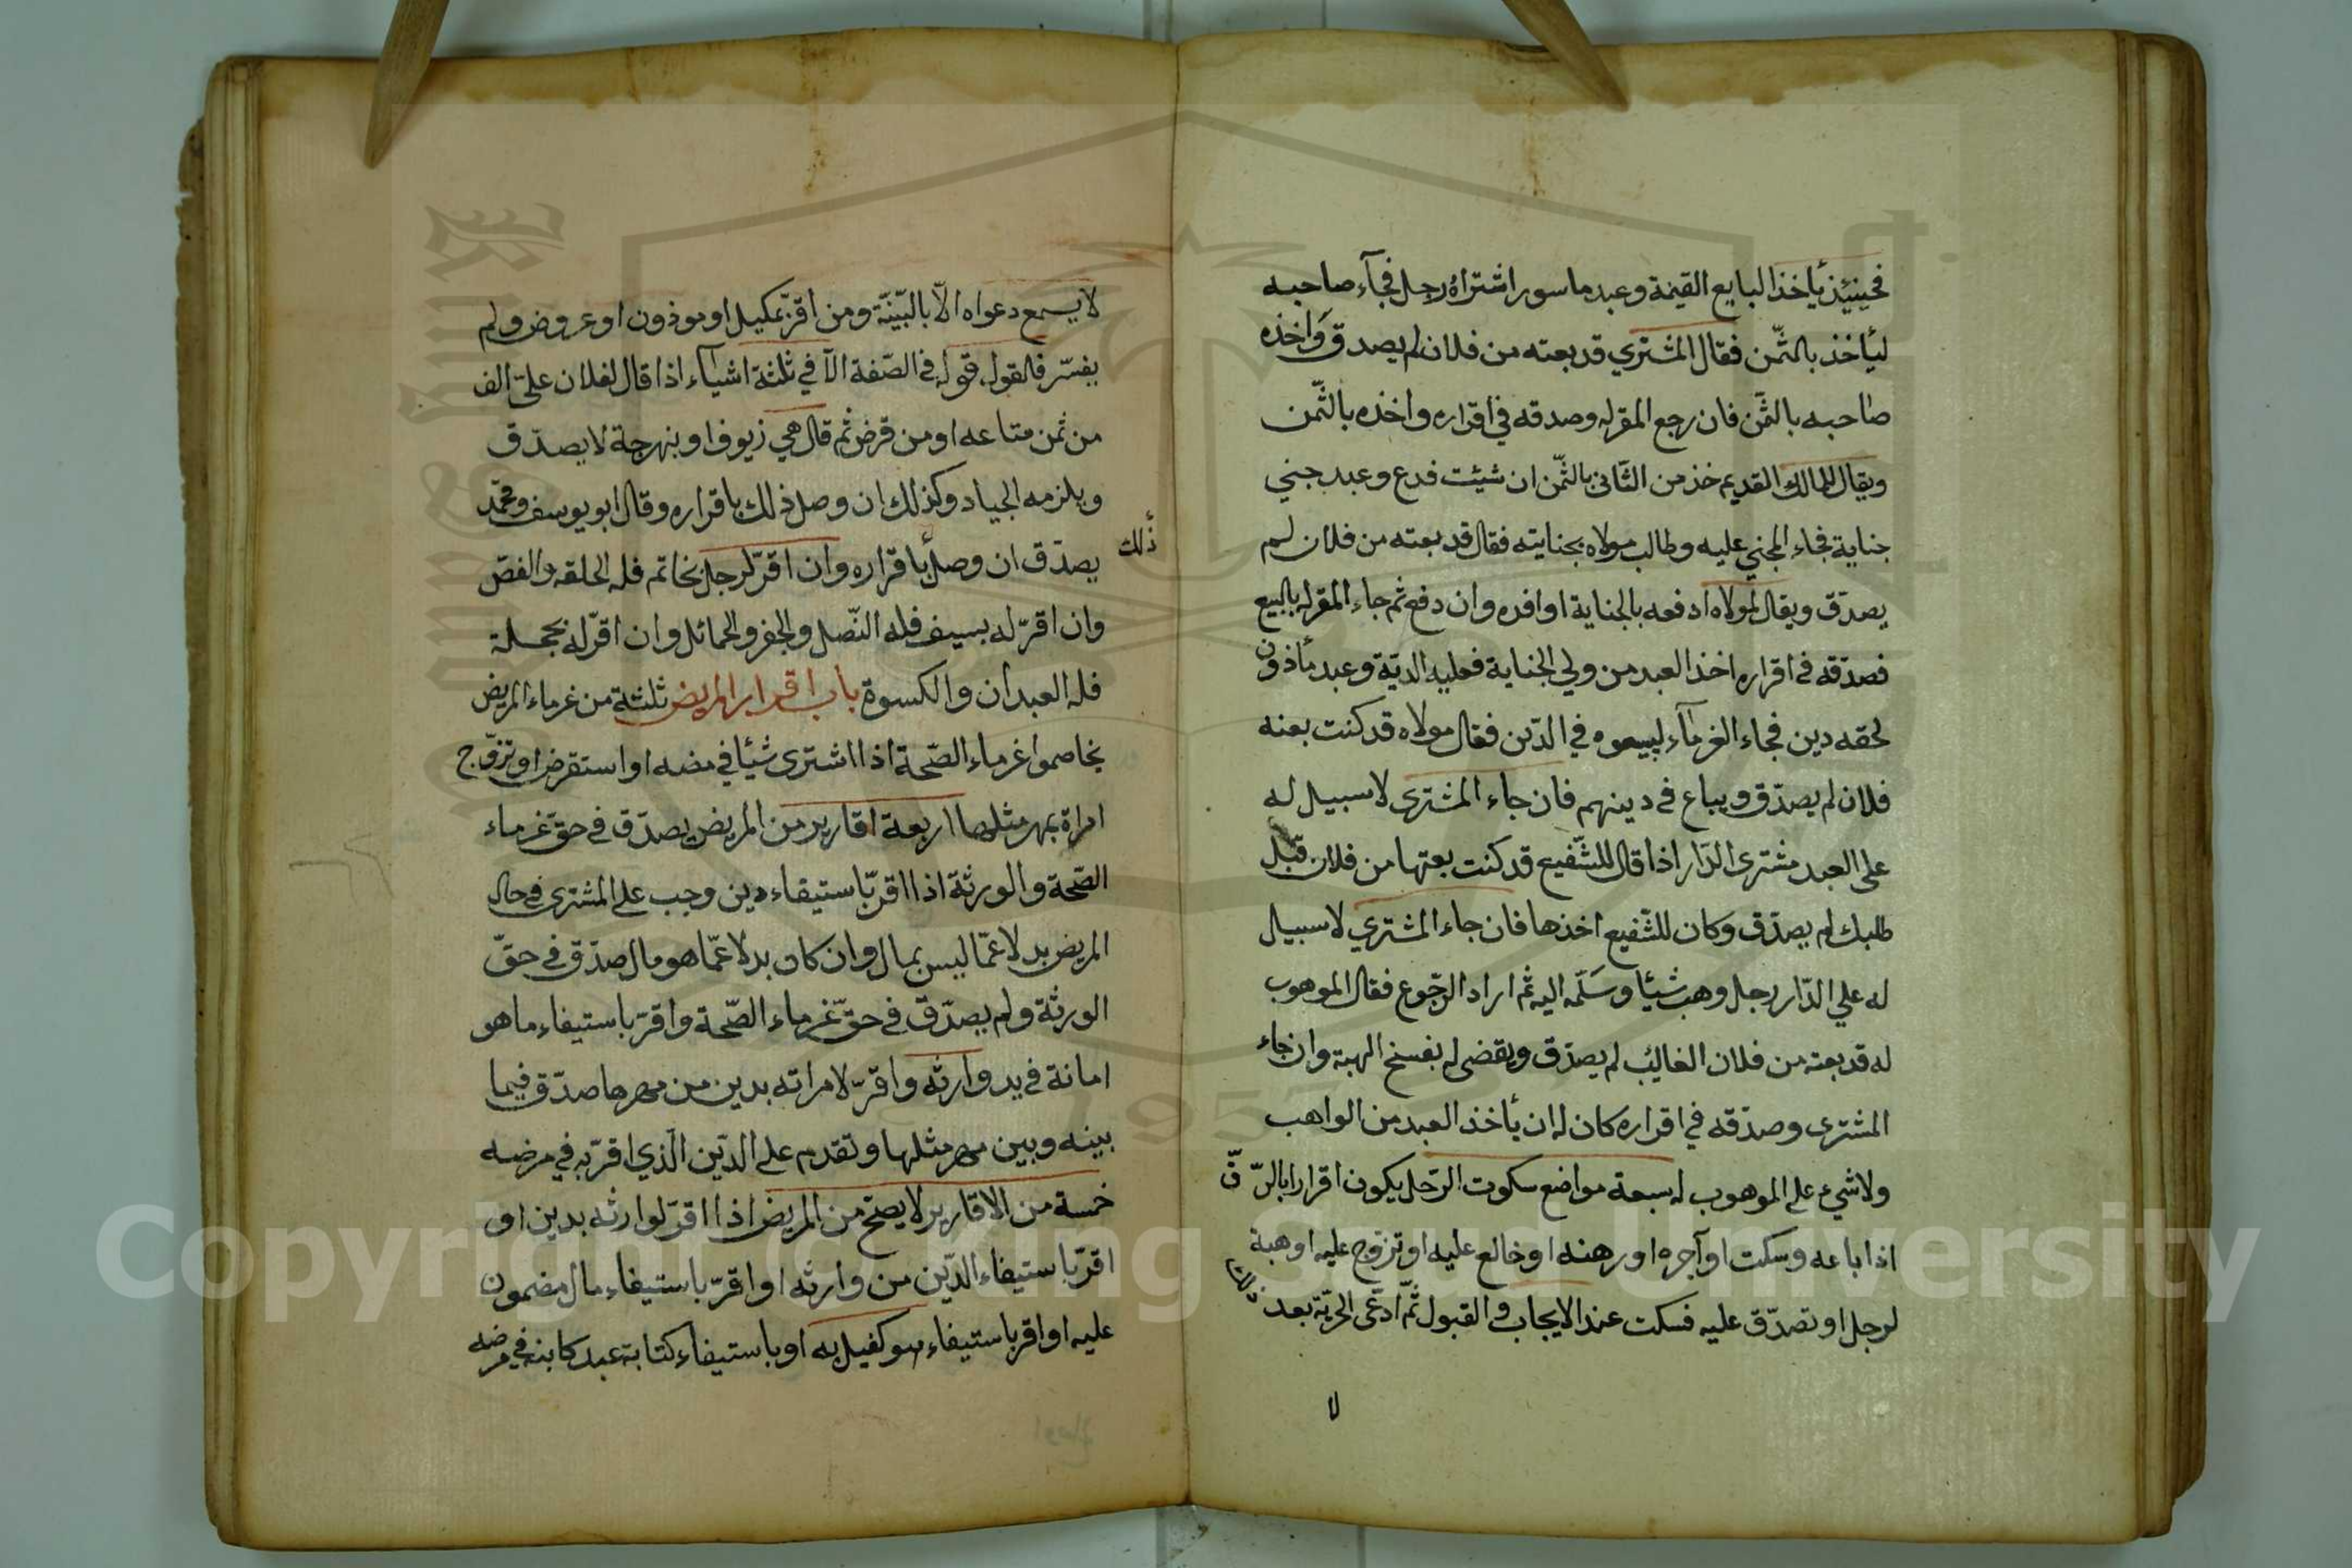 فحينئذ يأخذ البايع القيمة وعبد ماسور اشتراه رجل فجآء صاحبه
ليأخذ بالثّمن فقال المشتري قد بعته من فلان لم يصدق وَاخذه
صاحبه بالثّمن فان رجع المقرله وصدقه في اقراره واخذه بالثّمن
ويقال للمالك القديم خذ من الثّانى بالثّمن ان شيئت فدع وعبد جني
جناية فجاء المجني عليه وطالب مولاه بجنايته فقال قد بعته من فلان لم
يصدّق ويقال لمولاه ادفعه بالجناية او افده وان دفع ثم جاء المقرله بالبيع
فصدّقه في اقراره اخذ العبد من ولي الجناية فعليه الديّة وعبد مأذون
لحقه دين فجاء الغرمآء ليبيعوه في الدّين فقال مولاه قد كنت بعته
فلان لم يصدّق ويباع في دينهم فان جاء المشترى لا سبيل له
على العبد مشترى الدّار اذا قال للشّفيع قد كنت بعتها من فلان قبّل
طلبك لم يصدّق وكان للشّفيع اخذها فان جاء المشتري لا سبيل
له علي الدّار رجل وهب شيئا وسَلّمه اليه ثم اراد الرّجوع فقال الموهوب
له قد بعته من فلان الغائب لم يصدّق ويقضى له بفسخ الهبة وان جاء
المشترى وصدّقه في اقراره كان له ان يأخذ العبد من الواهب
ولا شيء على الموهوب له سبعة مواضع سكوت الرّجل يكون اقرارا بالرّقّ
اذا باعه وسكت او آجره او رهنه او خالع عليه او تزوّج عليه او هبة
لرجل او تصدّق عليه فسكت عند الايجاب والقبول ثمّ ادّعى الحريّة بعد ذلك
لا
لا يسمع دعواه الّا بالبيّنة ومن اقرّ بمكيل او موذون او عروض ولم
يفسّر فالقول قوله في الصّفة الّا في ثلثة اشيآء اذا قال لفلان علىّ الف
من ثمن متاعه او من قرض ثم قال هي زيوف او بنهرجة لا يصدّق
ويلزمه الجياد وكذلك ان وصل ذلك باقراره وقال ابو يوسف ومحمّد
يصدّق ان وصل باقراره وان اقرّ لرجل بخاتم فله الحلقه والفصّ
ذلك
وان اقرّ له بسيف فله النّصل والجفر والحمائل وان اقرّ له بحجلة
فله العبدان والكسوة باب اقرار المريض ثلثة من غرماء المريض
يخاصموا غرماء الصّحة اذا اشترى شيئا في مضه او استقرض او تزوّج
امراة بمهر مثلها اربعة اقارير من المريض يصدّق في حقّ غرماء
الصّحة والورثة اذا اقرّ باستيفاء دين وجب على المشترى في حال
المريض بدلا عمّا ليس بمال وان كان بدلا عمّا هو مال صدّق في حقّ
الورثة ولم يصدّق في حقّ غرماء الصّحة واقرّ باستيفاء ما هو
امانة في يد وارثه واقرّ لامراته بدين من مهرها صدّق فيما
بينه وبين مهر مثلها وتقدم على الدّين الّذي اقرّ به في مرضه
خمسة من الاقارير لا يصحّ من المريض اذا اقرّ لوارثه بدين او
اقرّ باستيفاء الدّين من وارثه او اقرّ باستيفاء مال مضمون
عليه او اقر باستيفاء هو كفيل به او باستيفاء كتابة عبد كاتبه في مرضه
Copyright © King Saud University
1957